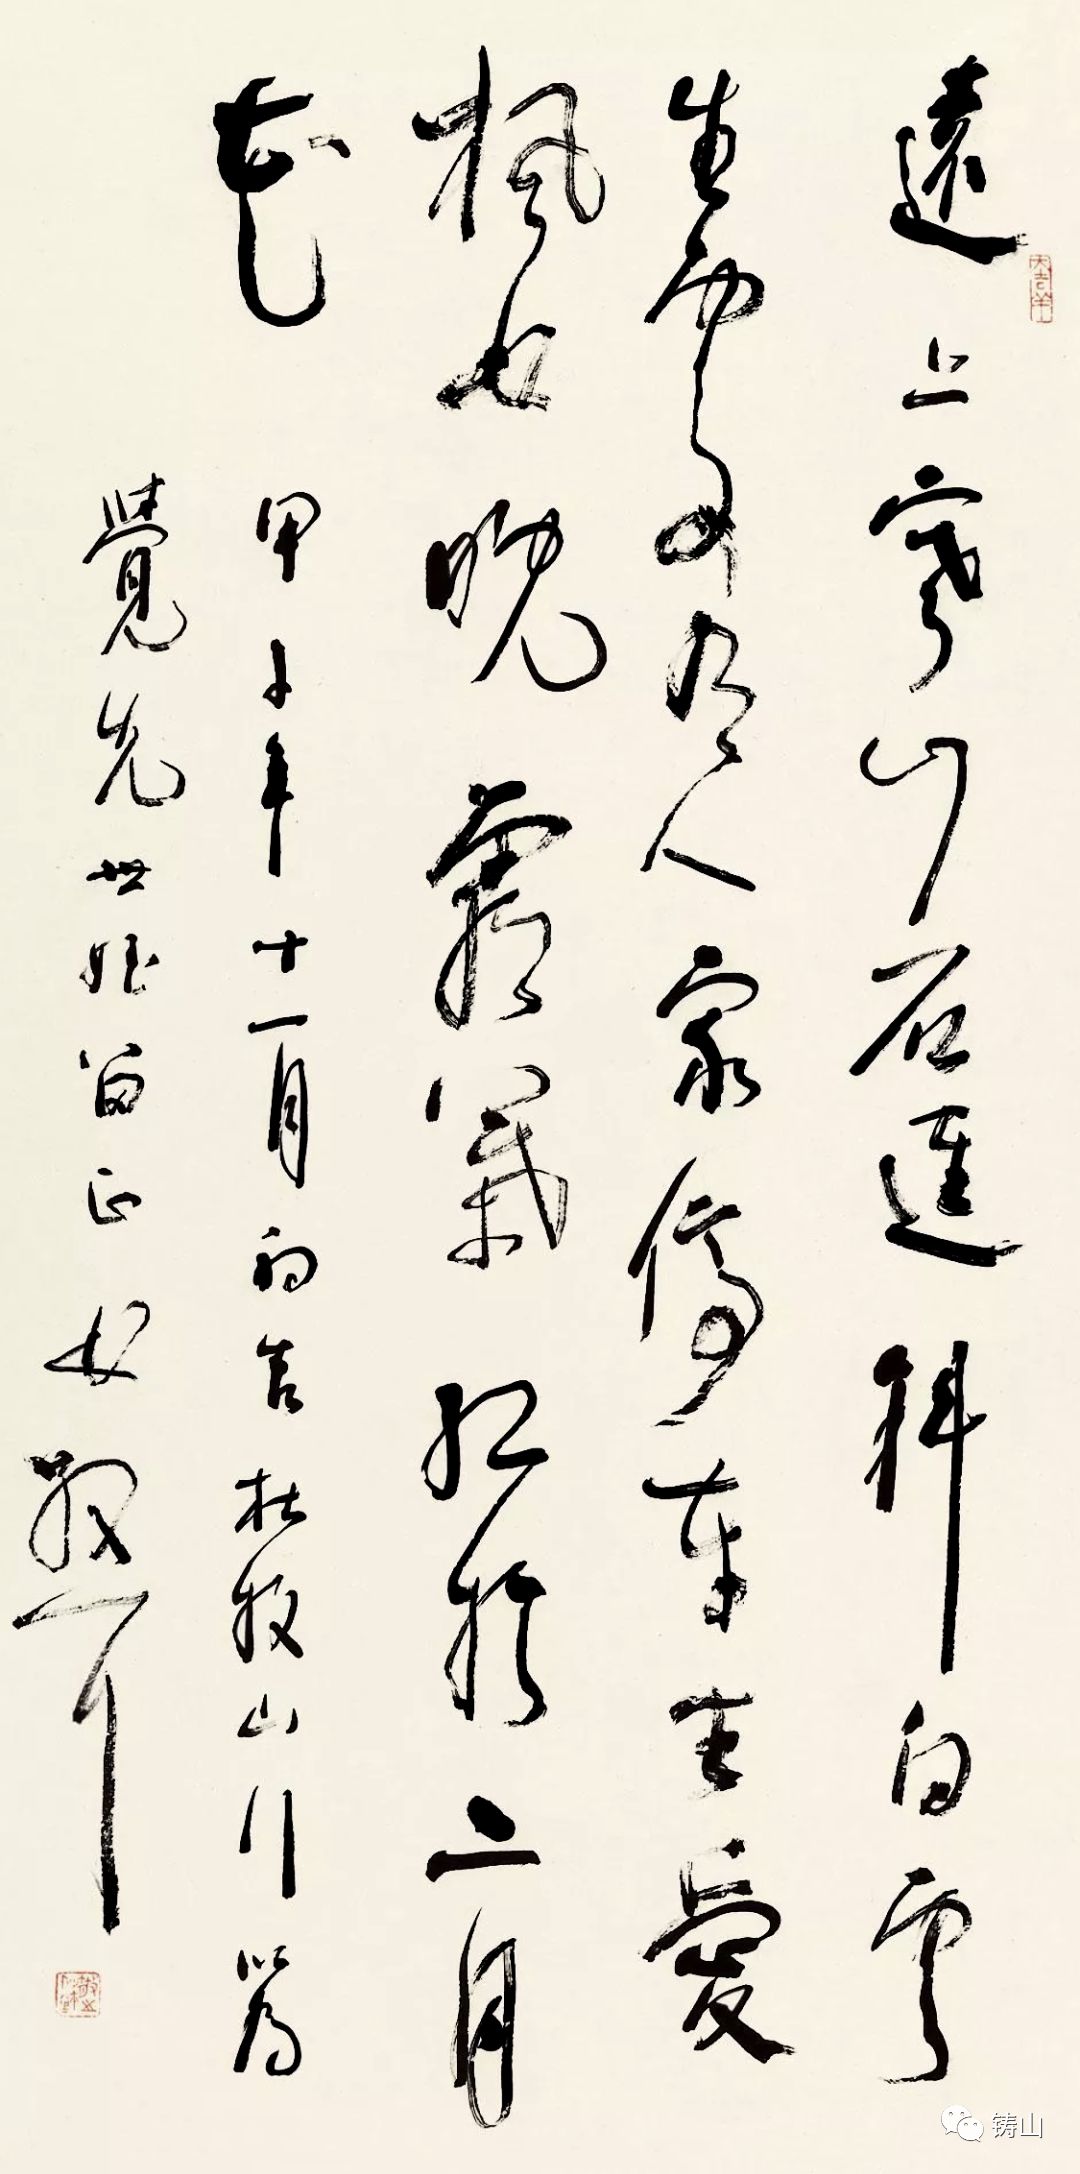 遠上寒山石逕斜白雲
生處有人家停車坐愛
楓林晚霜葉紅於二月
花
甲子年十一月初吉杜牧山行以為
覺先世姪留正林散耳
大吉羊
铸山